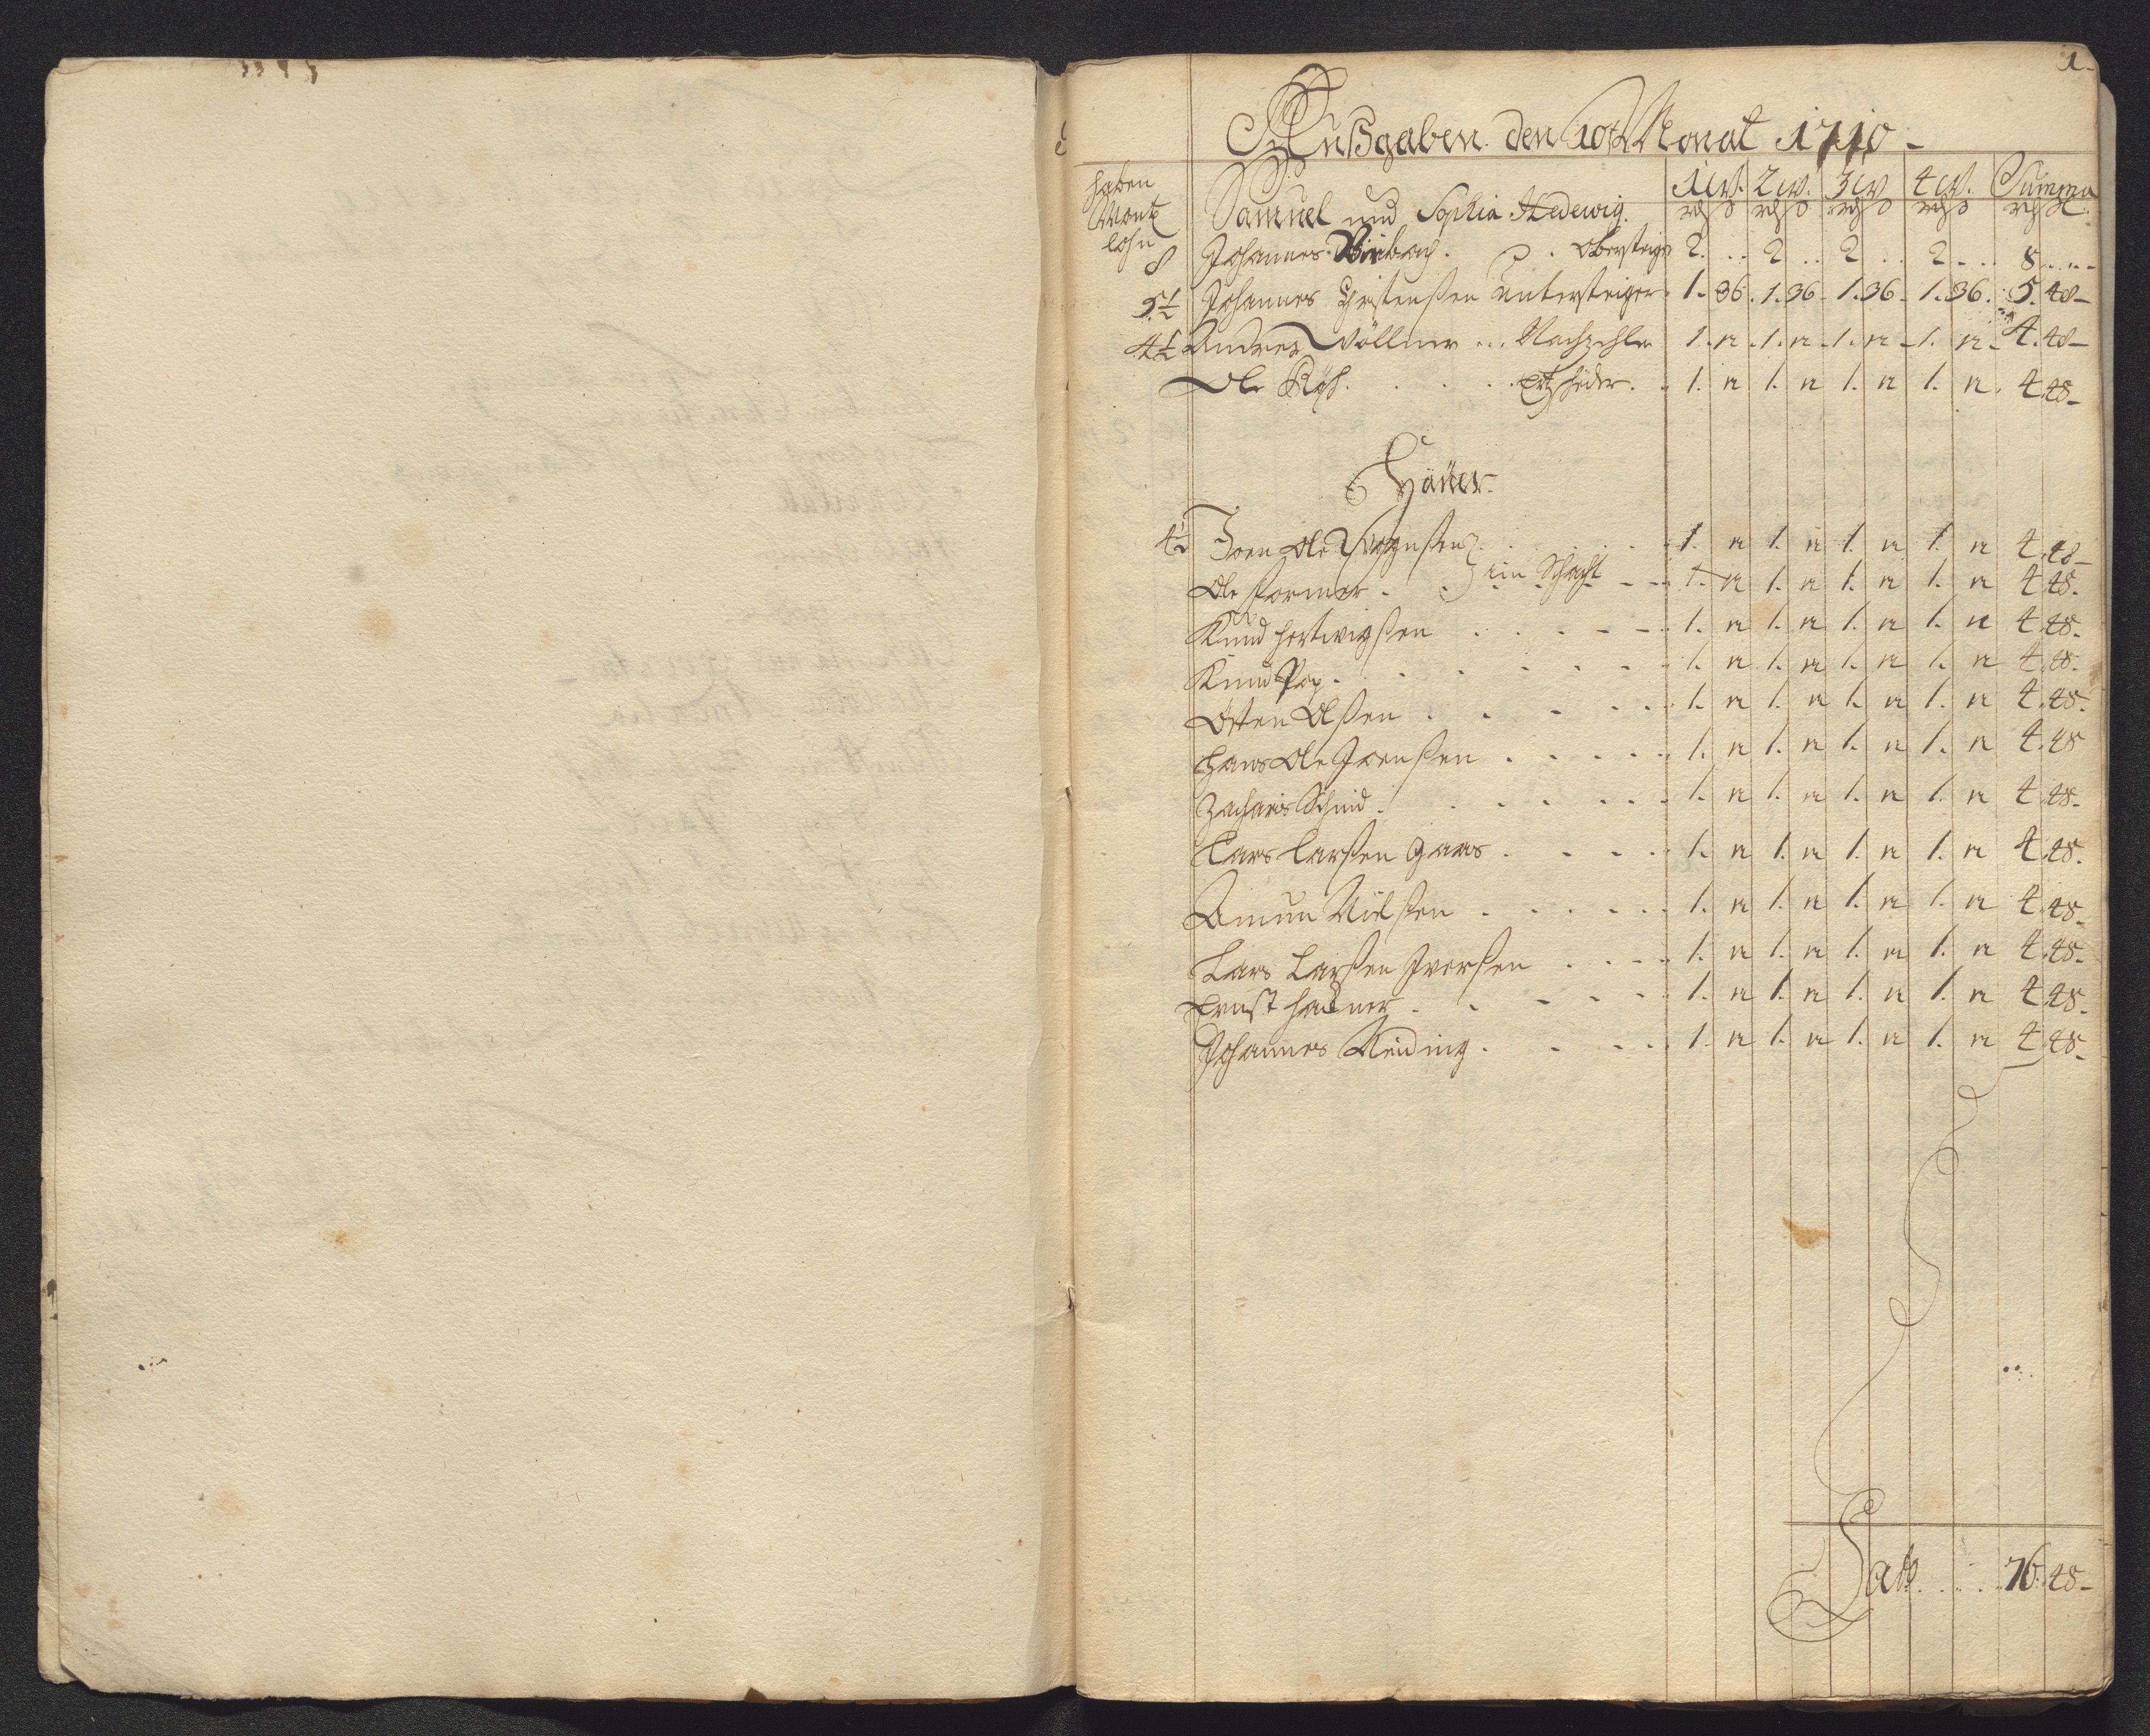 1.
Außgaben den 10t Monat 1710
haben Monts lohn
Samuel und Sophia Hedewig. 1 W. 2 W. 3 W 4 W. Summa
rd ß rd ß rd ß rd ß rd ß
8 Johannes . . Obersteiger 2 . . 2 . . 2 . . 2 . . 8 . . .
5½ Johannes Christenßen Untersteiger 1. 36. 1. 36. 1. 36. 1. 36. 5. 48
4½ Andres Völlner ... Nachzehler 1. 12. 1. 12. 1. 12. 1. 12. 4. 48
Ole . . . . 1. 12 1. 12 1. 12 1. 12. 4. 48
Häuer
4½ Joen Ole . . . 1. 12 1. 12 1. 12 1. 12 4. 48
Ole Former . } im Schacht 1. 12 1. 12 1. 12 1. 12 4. 48.
Knud Hertwigßen . . . 1. 12 1. 12 1. 12 1. 12 4. 48.
Knud Pop . . . 1. 12 1. 12 1. 12 1. 12 4. 48.
Östen Olßen . . . 1. 12 1. 12 1. 12 1. 12 4. 48.
Hans Ole Joenßen . . . 1. 12 1. 12 1. 12 1. 12 4. 48
Zacharis Schmid . . . 1. 12 1. 12 1. 12 1. 12 4. 48.
Lars Larßen Gaas . . . 1. 12 1. 12 1. 12 1. 12 4. 48.
Amun Nielßen . . . 1. 12 1. 12 1. 12 1. 12 4. 48.
Lars Larßen Iverßen . . . 1. 12 1. 12 1. 12 1. 12 4. 48.
Ernst . . . 1. 12 1. 12 1. 12 1. 12 4. 48.
Johannes Reiding . . . 1. 12 1. 12 1. 12 1. 12 4. 48.
Latt . . . . 76. 48